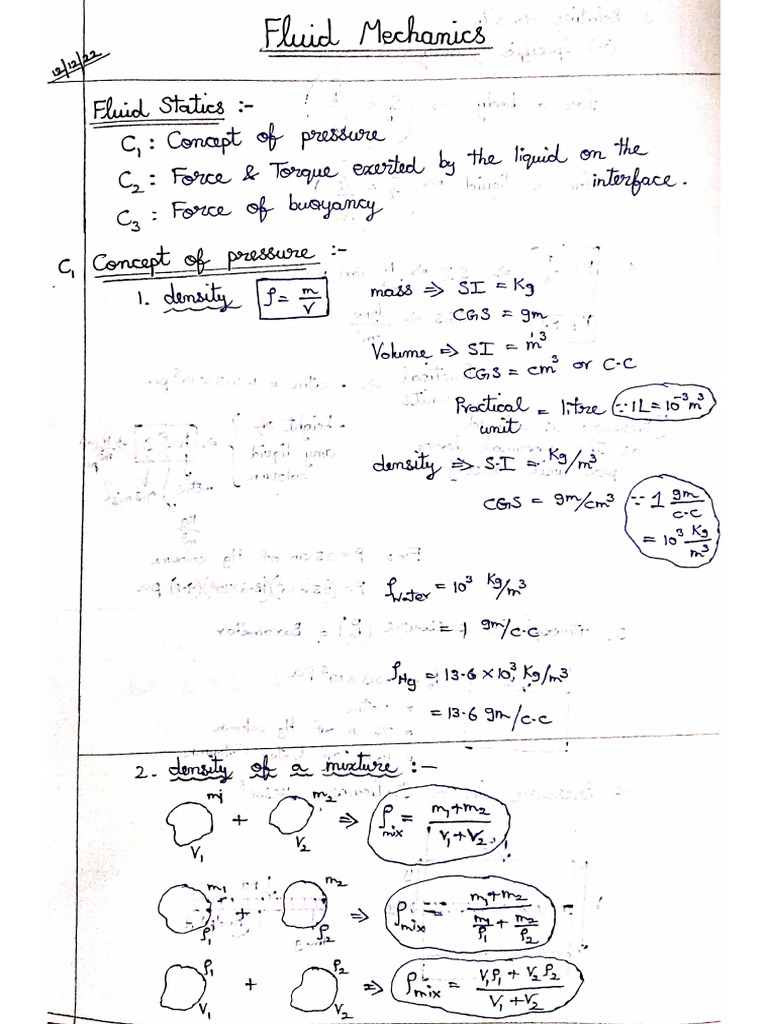 Fluid Mechanics
12/12/22
Fluid Statics :-
C₁ : Concept of pressure
C₂ : Force & Torque exerted by the liquid on the
interface.
C₃ : Force of buoyancy
C₁ Concept of pressure :-
1. density ρ = m/V mass ⇒ SI = Kg
CGS = gm
Volume ⇒ SI = m³
CGS = cm³ or C-C
Practical unit = litre ∵ 1L = 10⁻³ m³
density ⇒ S.I = Kg/m³
CGS = gm/cm³ ∵ 1 gm/c-c = 10³ Kg/m³
ρwater = 10³ Kg/m³
= 1 gm/c-c
ρHg = 13.6 × 10³ Kg/m³
= 13.6 gm/c-c
2. density of a mixture :-
m₁ V₁ + m₂ V₂ ⇒ ρmix = (m₁+m₂)/(V₁+V₂)
m₁ ρ₁ + m₂ ρ₂ ⇒ ρmix = (m₁+m₂)/(m₁/ρ₁ + m₂/ρ₂)
ρ₁ V₁ + ρ₂ V₂ ⇒ ρmix = (V₁ρ₁ + V₂ρ₂)/(V₁+V₂)